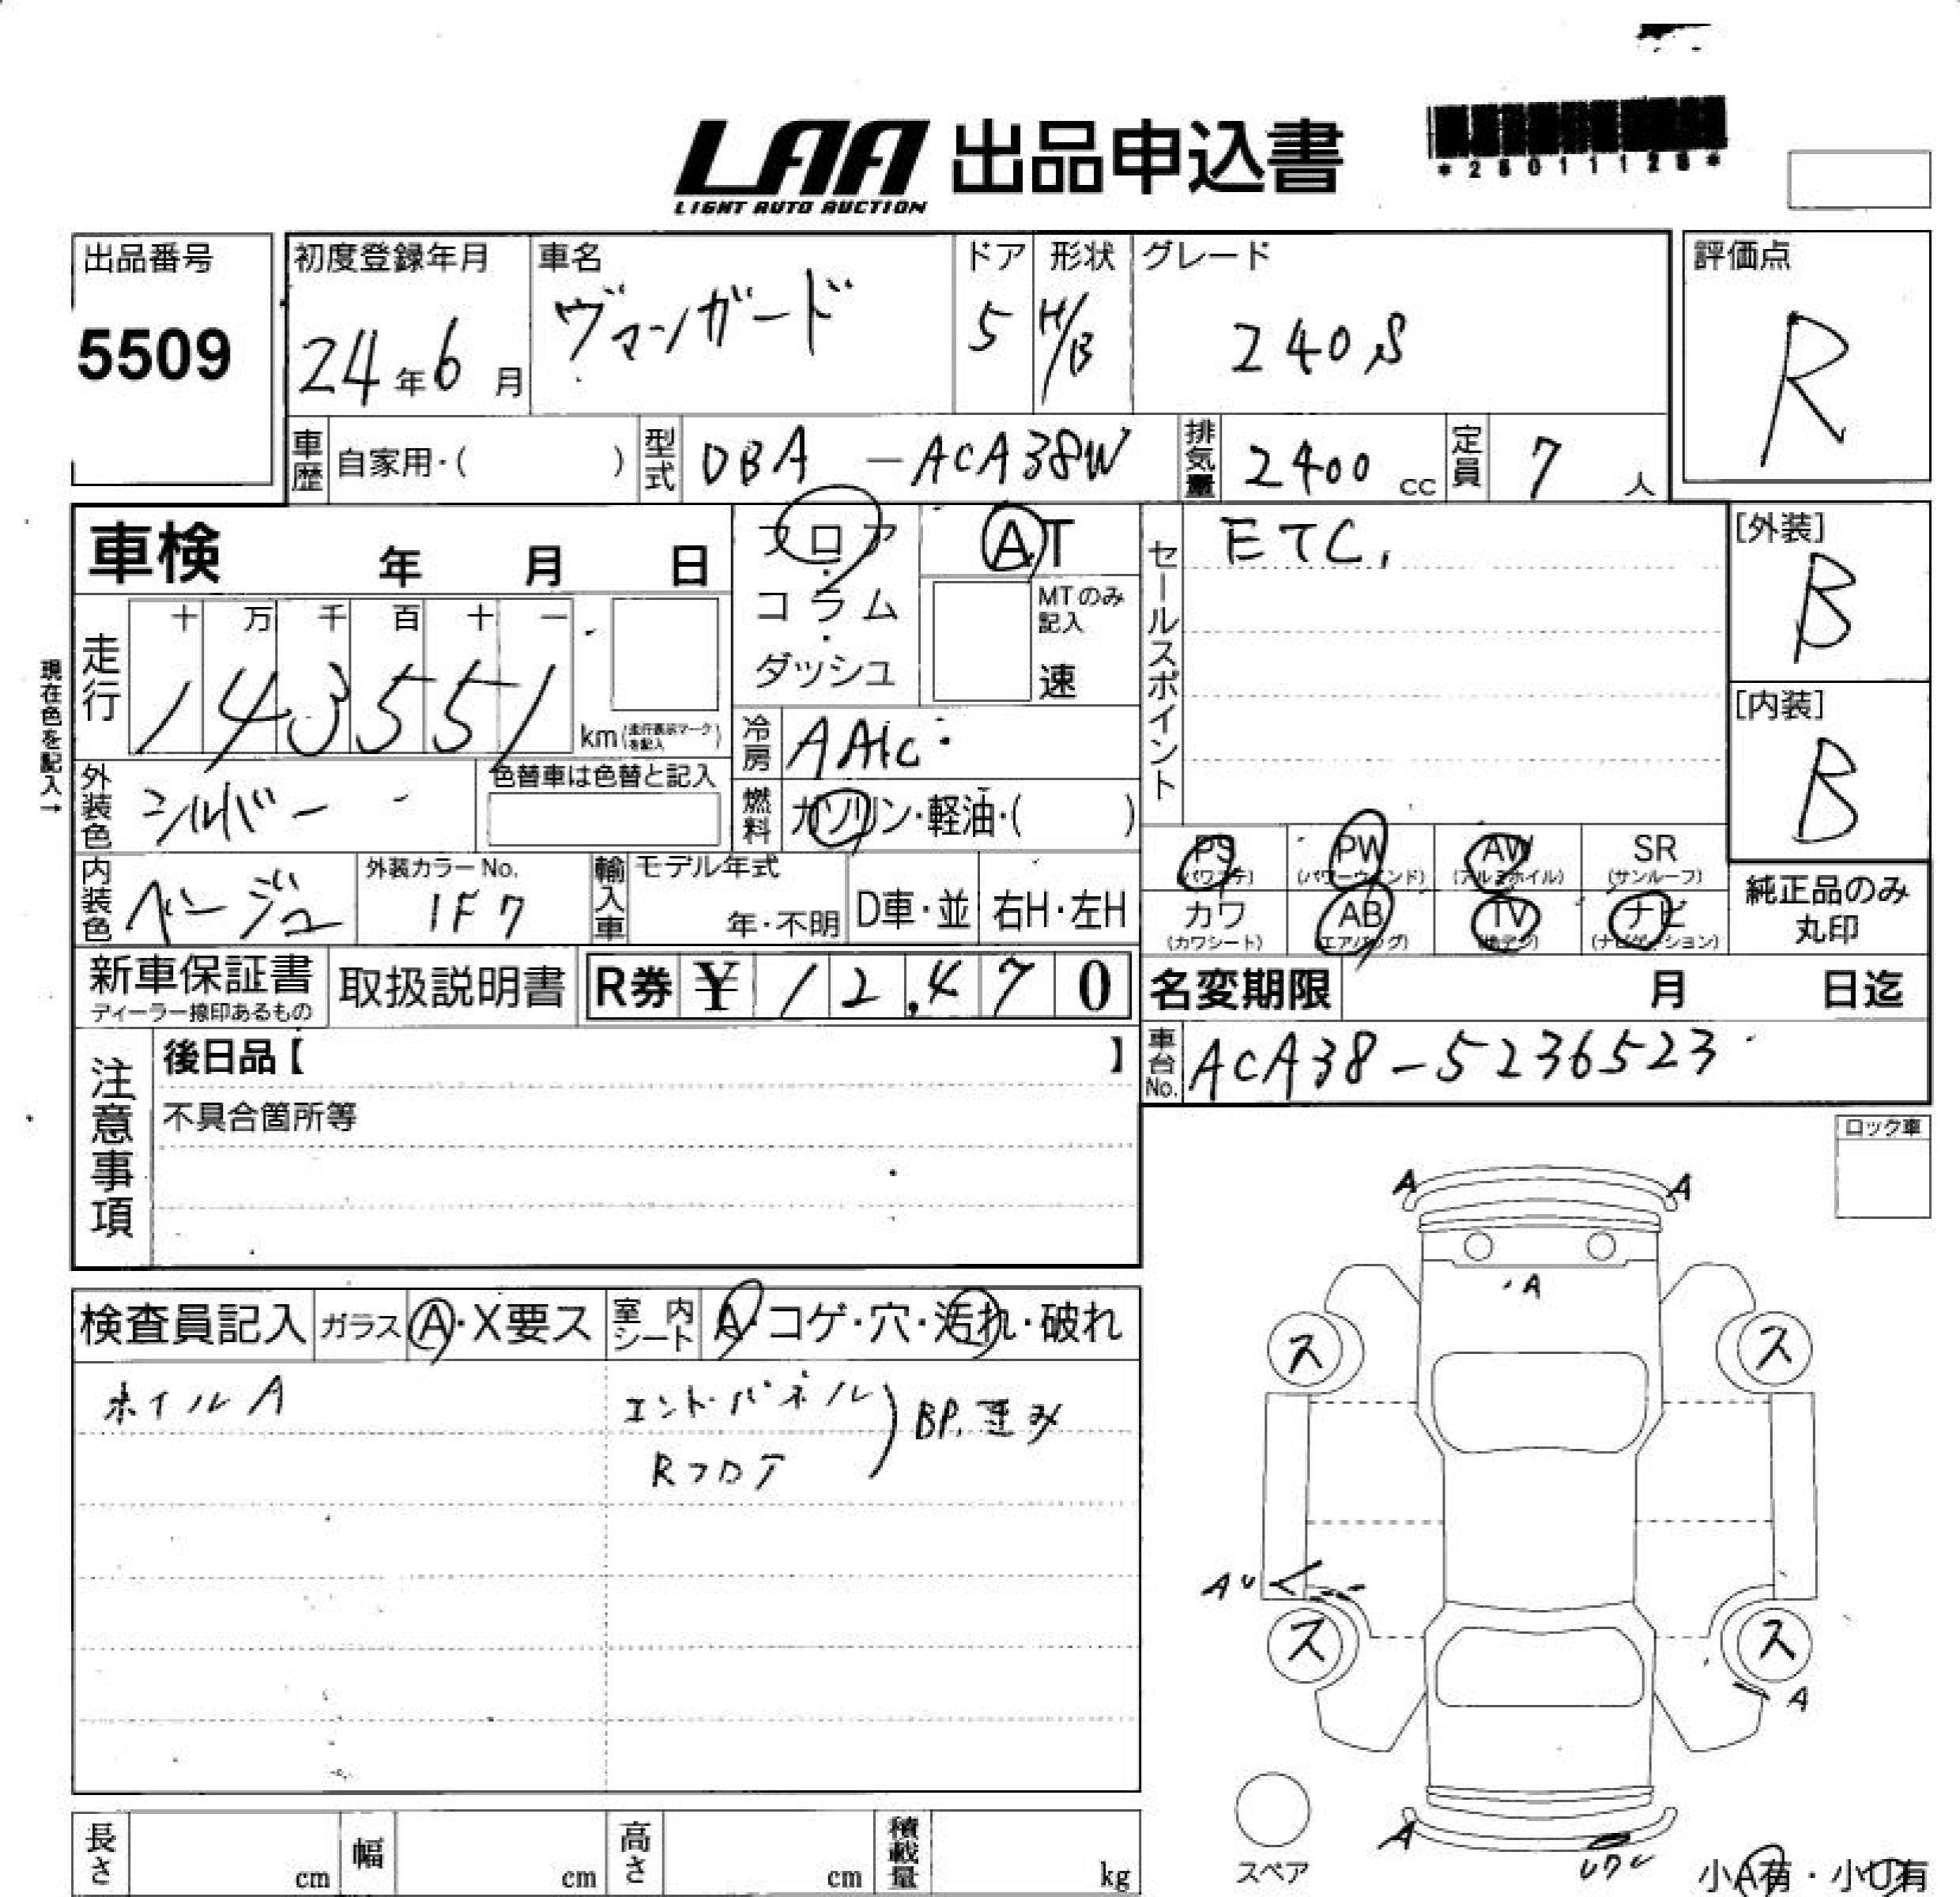 LAA 出品申込書
LIGHT AUTO AUCTION
出品番号
5509
初度登録年月
24年6月
車名
ヴァンガード
ドア
5
形状
H/B
グレード
240S
評価点
R
車歴 自家用・( )
型式 DBA-ACA38W
排気量 2400 cc
定員 7 人
車検 年 月 日
フロア・コラム・ダッシュ
AT
MTのみ記入
速
セールスポイント
ETC,
[外装]
B
[内装]
B
現在色を記入→
走行
十 万 千 百 十 一
143551
km(走行表示マークを記入)
冷房 AAC
外装色 シルバー
色替車は色替と記入
燃料 ガソリン・軽油・( )
内装色 ベージュ
外装カラーNo.
1F7
輸入車 モデル年式
年・不明
D車・並
右H・左H
PS (パワステ)
PW (パワーウインド)
AW (アルミホイル)
SR (サンルーフ)
カワ (カワシート)
AB (エアバッグ)
TV (地デジ)
ナビ (ナビゲーション)
純正品のみ
丸印
新車保証書
ディーラー捺印あるもの
取扱説明書
R券 ¥ 12,470
名変期限 月 日迄
車台No. ACA38-5236523
注意事項
後日品【 】
不具合箇所等
ロック車
検査員記入
ガラス A・X要ス
室内シート A・コゲ・穴・汚れ・破れ
ホイルA
エンドパネル
Rフロア
BP.歪み
A
A
A
ス
ス
AU
ス
ス
A
A
スペア
小A有・小U有
長さ cm
幅 cm
高さ cm
積載量 kg